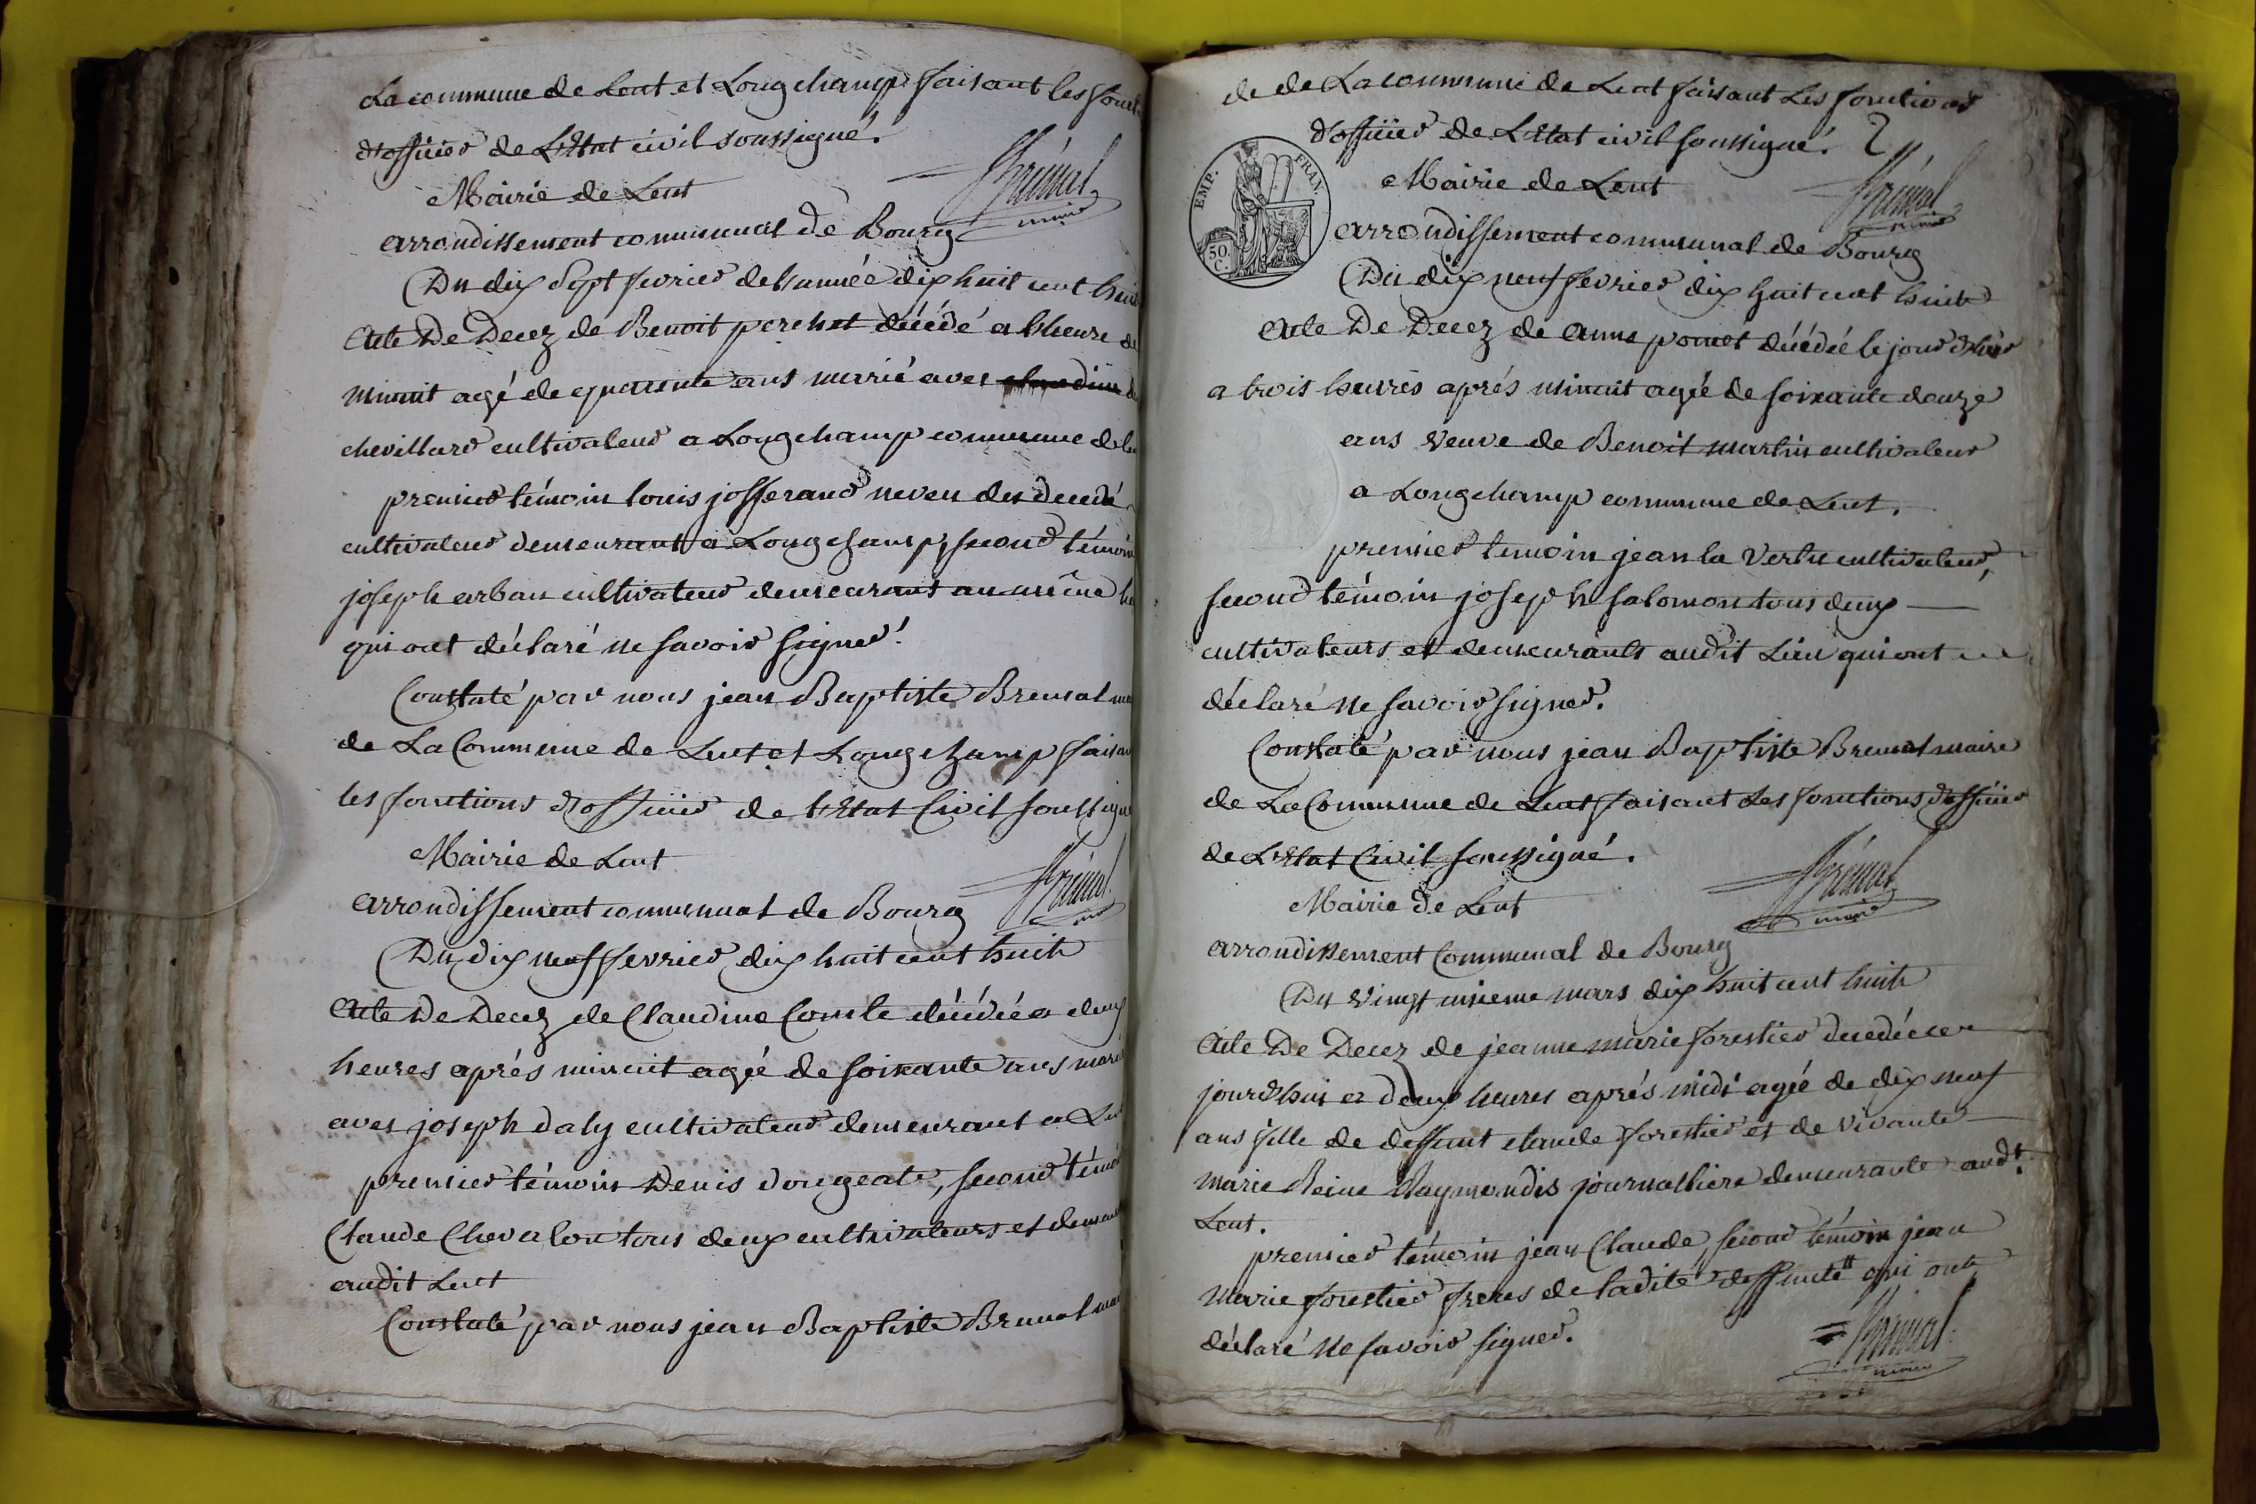 La commune de Lent et Longchamp faisant les fonct
d'officier de L'Etat civil soussigné.
Brémal
maire
Mairie de Lent
arrondissement communal de Bourg
Du dix sept fevrier de l'année dix huit cent huit
Acte De Decez de Benoit perchet décédé a l'heure de
minuit agé de quarante ans marié avec claudine
chevillard cultivateur a Longchamp commune de
premier témoin louis josserand neveu du decedé
cultivateur demeurant a Longchamp, second témoin
joseph arban cultivateur demeurant au même
qui ont déclaré ne savoir signer.
Constaté par nous jean Baptiste Bremal
de La Commune de Lent et Longchamp faisant
les fonctions d'officier de l'Etat Civil soussigné
Brémal
Mairie de Lent
arrondissement communal de Bourg
Du dix neuf fevrier dix huit cent huit
Acte De Decez de Claudine Comte décédée a deux
heures aprés minuit agée de soixante ans
avec joseph daly cultivateur demeurant a
premier témoin Denis dougeate, second témoin
Claude Chevalon tous deux cultivateurs et
audit Lent
Constaté par nous jean Baptiste Bremal
de de La commune de Lent faisant Les fonctions
d'officier de L'Etat civil soussigné.
EMP. FRAN.
50.
C.
Brémal
maire
Mairie de Lent
arrondissement communal de Bourg
Du dix neuf fevrier dix huit cent huit
Acte De Decez de anne décédée le jour d'hier
a trois heures aprés minuit agée de soixante douze
ans veuve de Benoit martin cultivateur
a Longchamp commune de Lent.
premier temoin jean la vertu cultivateur,
second témoin joseph salomon tous deux
cultivateurs et demeurants audit Lieu qui ont
déclaré ne savoir signer.
Constaté par nous jean Baptiste Bremal maire
de La Commune de Lent faisant Les fonctions d'officier
de L'Etat Civil soussigné.
Brémal
maire
Mairie de Lent
arrondissement Communal de Bourg
Du vingt unieme mars dix huit cent huit
Acte De Decez de jeanne marie forestier decedée ce
jourd'hui a deux heures aprés midi agée de dix neuf
ans fille de deffunt claude forestier et de vivante
marie Reine Raymondis journalliere demeurante audt.
Lent.
premier témoin jean Claude, second témoin jean
marie forestier freres de ladite deffunte qui ont
déclaré ne savoir signer.
Brémal
maire